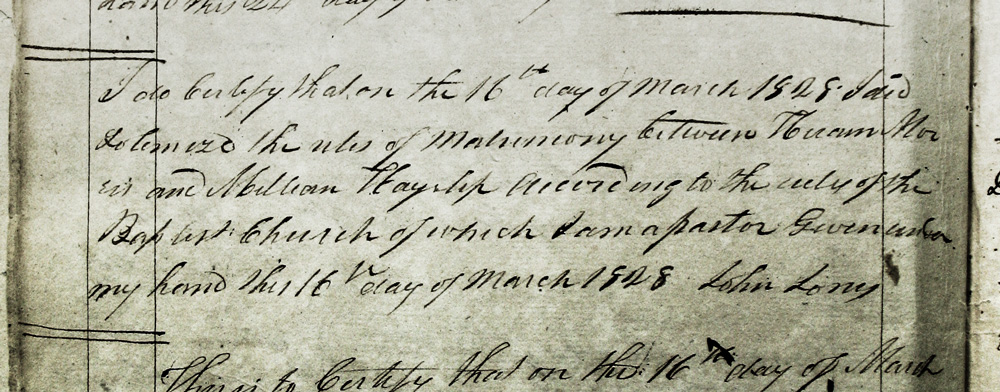 hand this 24 day of
I do Certify that on the 16th day of March 1828 I did
Solemnized the rites of Matrimony between Hiram Mor
ris and Millean Hayslip According to the ruls of the
Baptist Church of which I am a pastor Given under
my hand this 16th day of March 1828 John Long
This is to Certify that on the 16th day of March